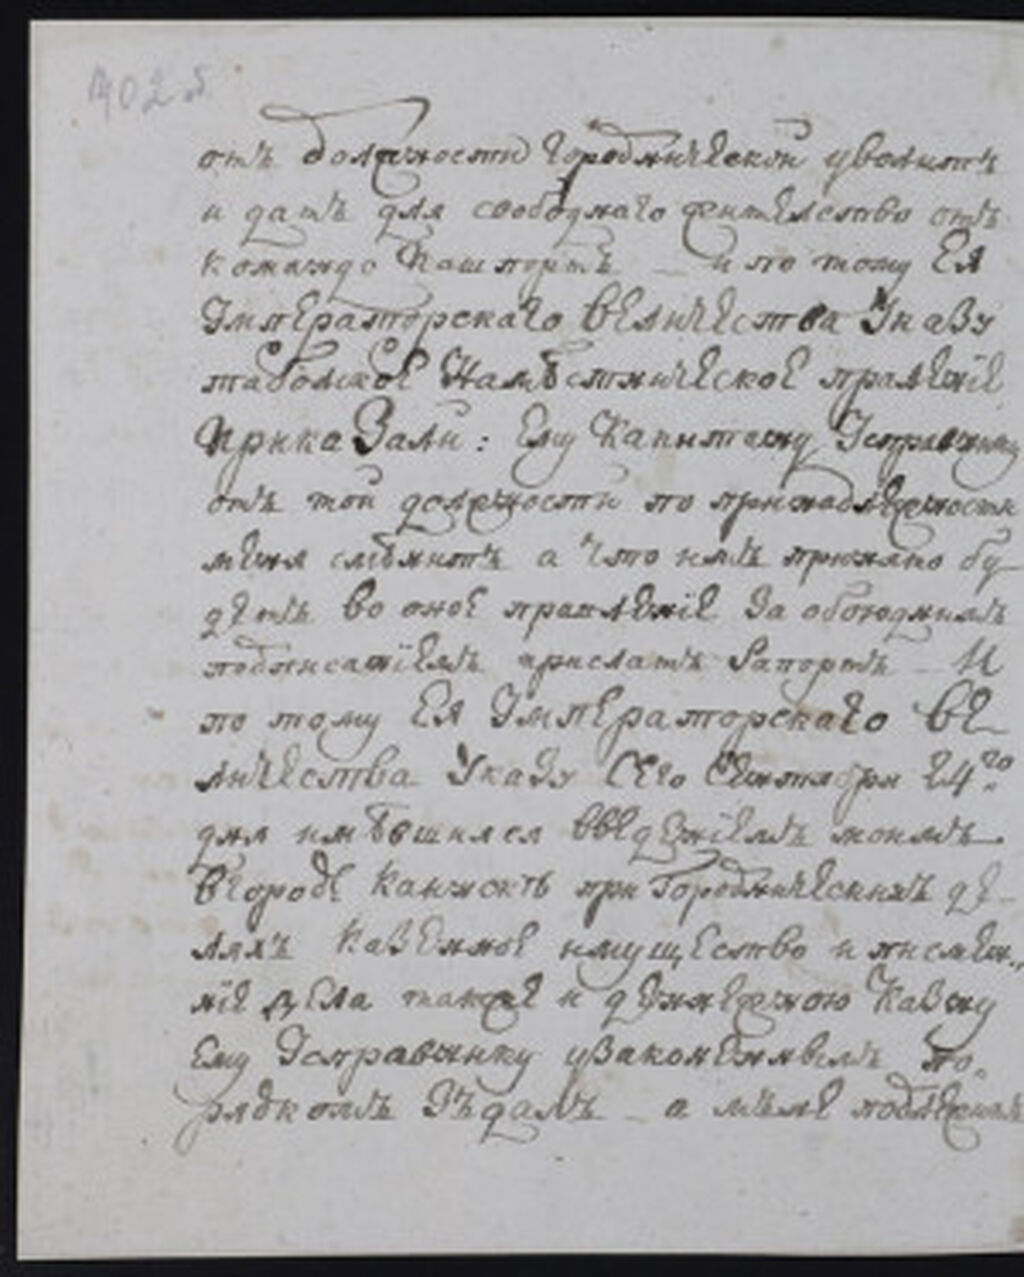 402 б
отъ должности городнической уволить
и дать для свободнаго жителство отъ
команды пашпортъ – и по тому ЕЯ
Императорскаго величества Указу
таболское Намѣстническое правленїе
приказали: Ему Капитану Исправнику
отъ той должности по принадлежности
меня смѣнить а что имъ принято бу
детъ во оное правленїе за обоюднымъ
подписанїемъ прислать рапортъ – И
по тому ЕЯ Императорскаго ве
личества Указу сего сентября 24го
дня имѣвшияся введенїемъ моимъ
вгороде Каинскѣ при Городническихъ де
лахъ казенное имущество и писмен
нїе дела также и денежною Казну
Ему Исправнику узаконеннымъ по
рядкомъ здалъ – а мне подлежитъ